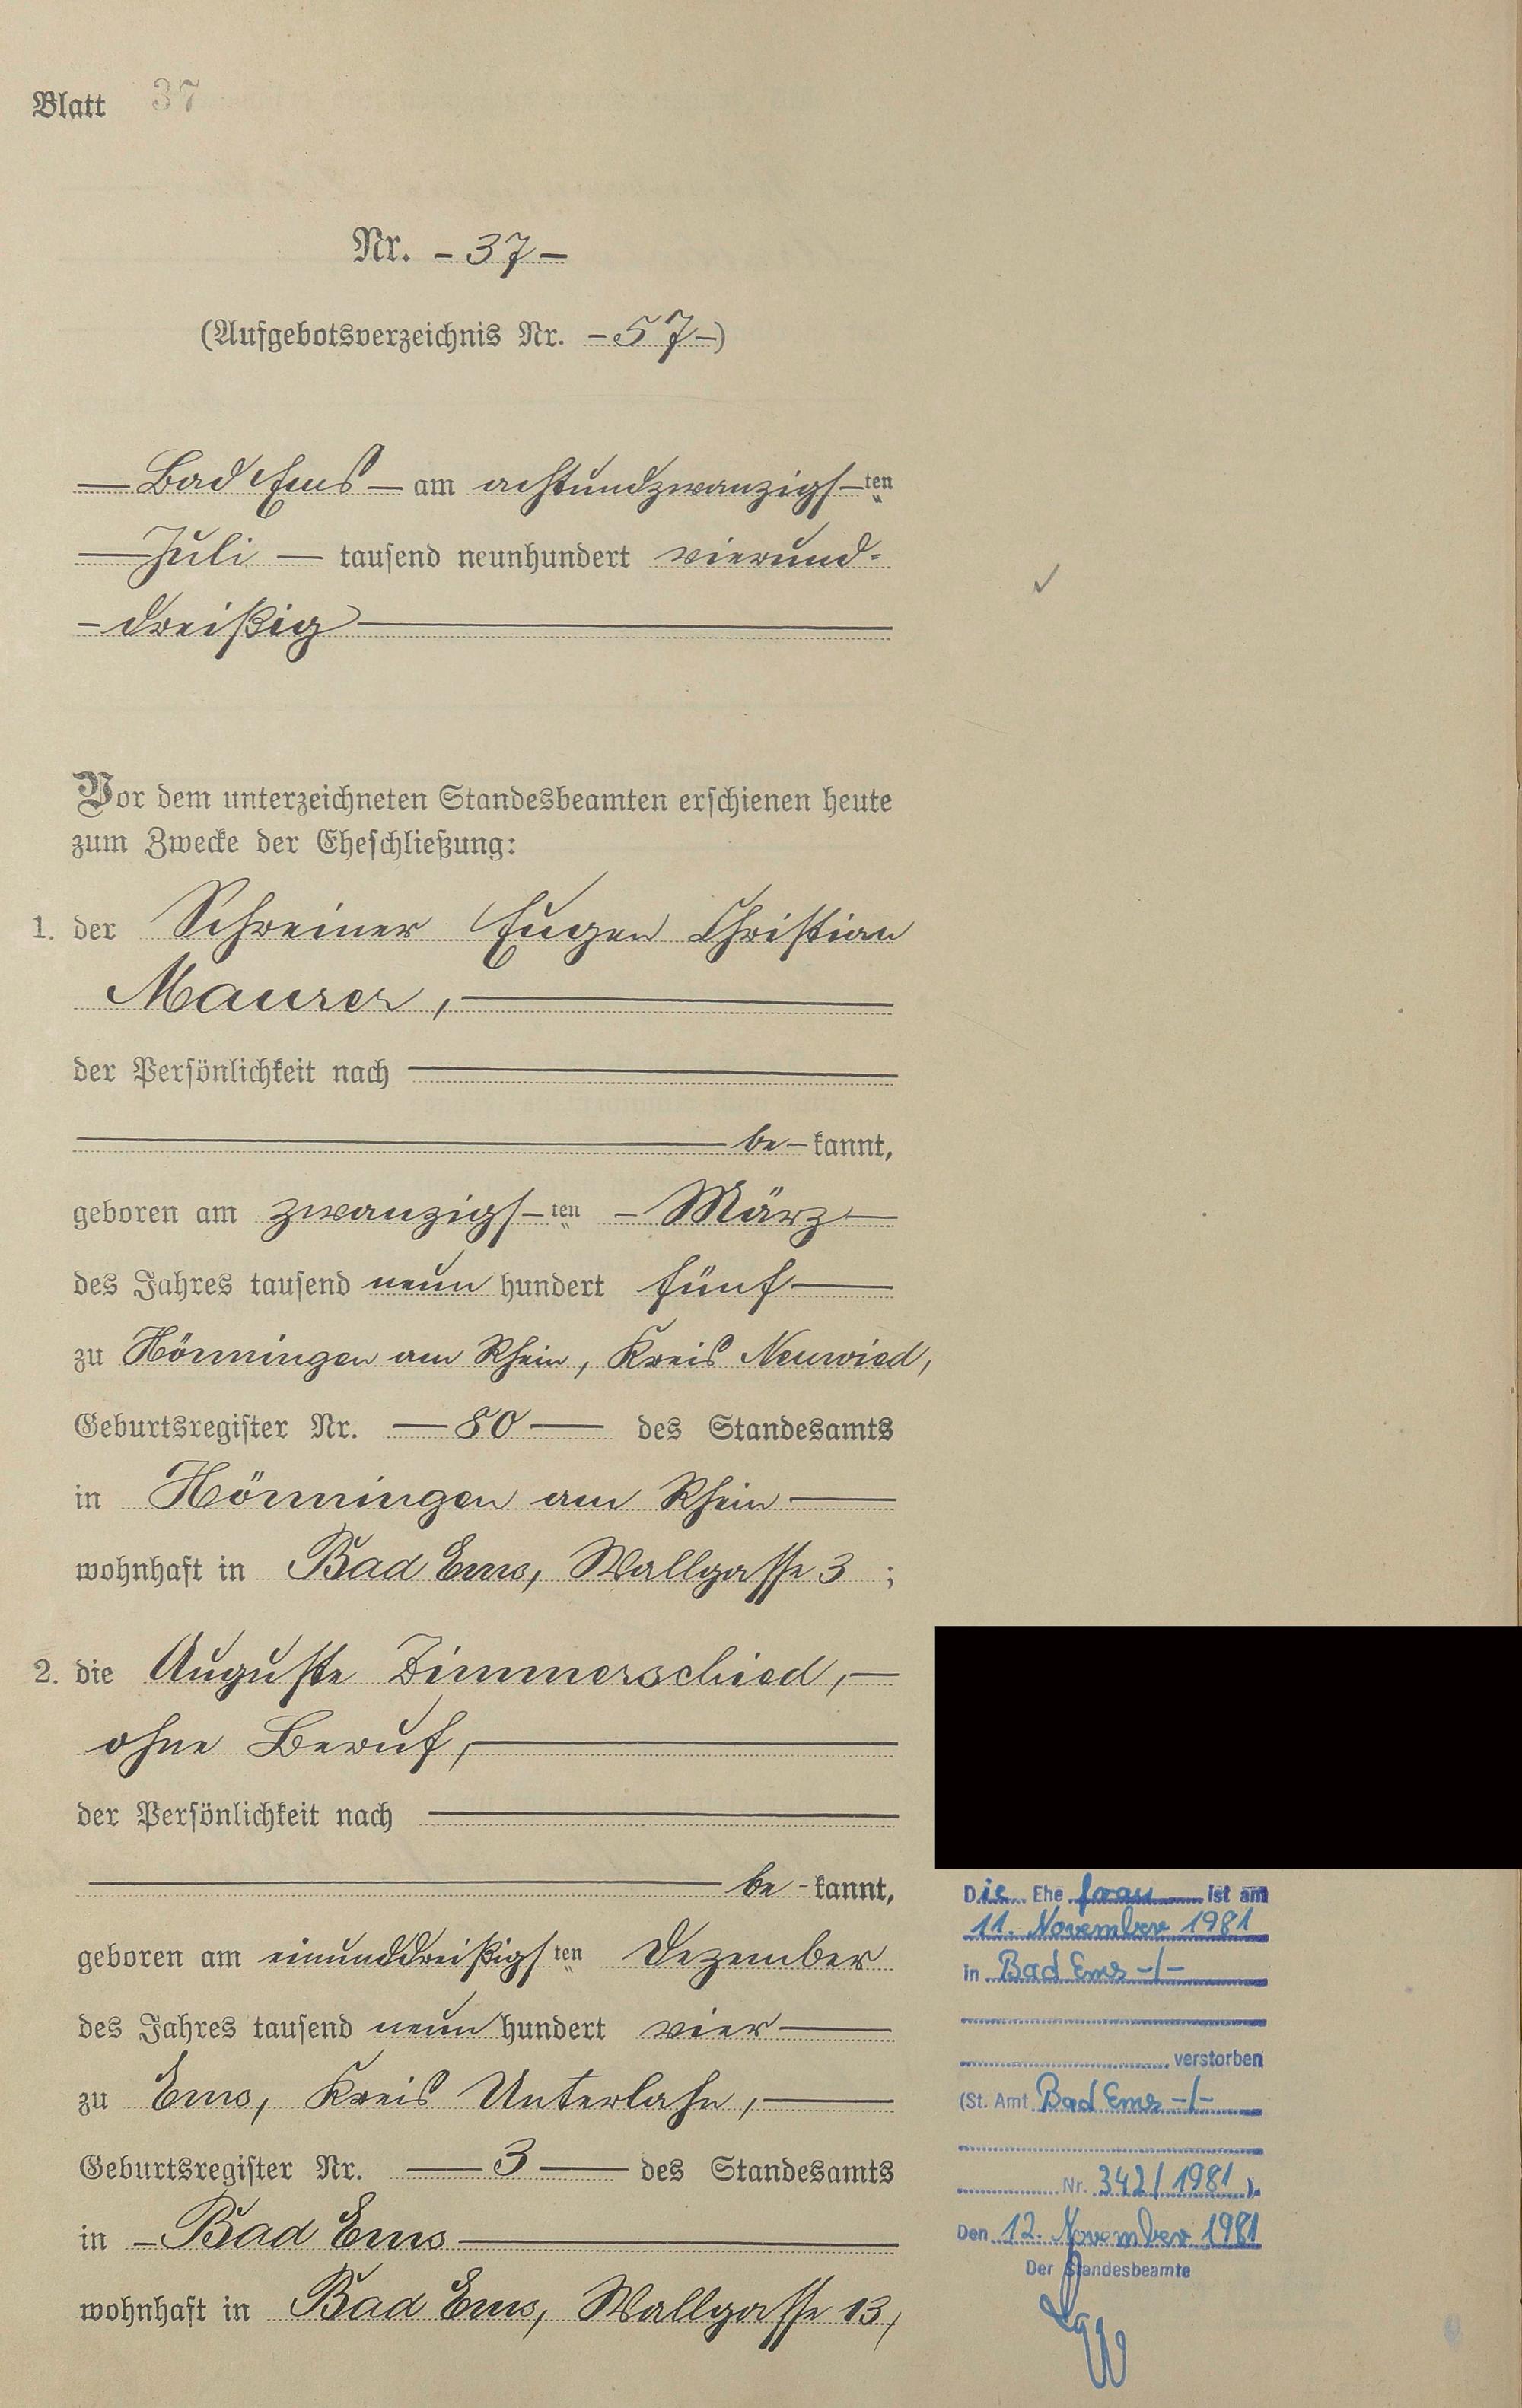 Blatt 37
Nr. - 37 -
(Aufgebotsverzeichnis Nr. - 57 -)
— Bad Ems — am achtundzwanzigs-ten
— Juli — tausend neunhundert vierund-
- dreißig —
Vor dem unterzeichneten Standesbeamten erschienen heute
zum Zwecke der Eheschließung:
1. der Schreiner Eugen Christian
Maurer, —
der Persönlichkeit nach —
— be - kannt,
geboren am zwanzigs-ten - März —
des Jahres tausend neun hundert fünf —
zu Hönningen am Rhein, Kreis Neuwied,
Geburtsregister Nr. — 80 — des Standesamts
in Hönningen am Rhein —
wohnhaft in Bad Ems, Wallgasse 3 ;
2. die Auguste Zimmerschied, —
ohne Beruf, —
der Persönlichkeit nach —
— be - kannt,
geboren am einunddreißigsten Dezember
des Jahres tausend neun hundert vier —
zu Ems, Kreis Unterlahn, —
Geburtsregister Nr. — 3 — des Standesamts
in - Bad Ems —
wohnhaft in Bad Ems, Wallgasse 13,
Die Ehe frau ist am
11. November 1981
in Bad Ems -/-
verstorben
(St. Amt Bad Ems -/-
Nr. 342/1981 ).
Den 12. November 1981
Der Standesbeamte